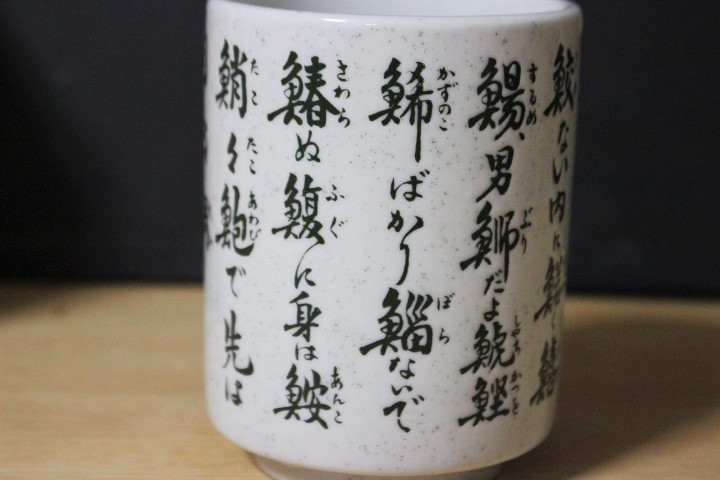 鮫ない内に
するめ ぶり しゃち かつを
鯣、男鰤だよ鯱鰹
かずのこ ぼら
鯑ばかり鯔ないで
さわら ふぐ あんこ
鰆ぬ鰒に身は鮟
たこ たこ あわび
鮹々鮑で先は